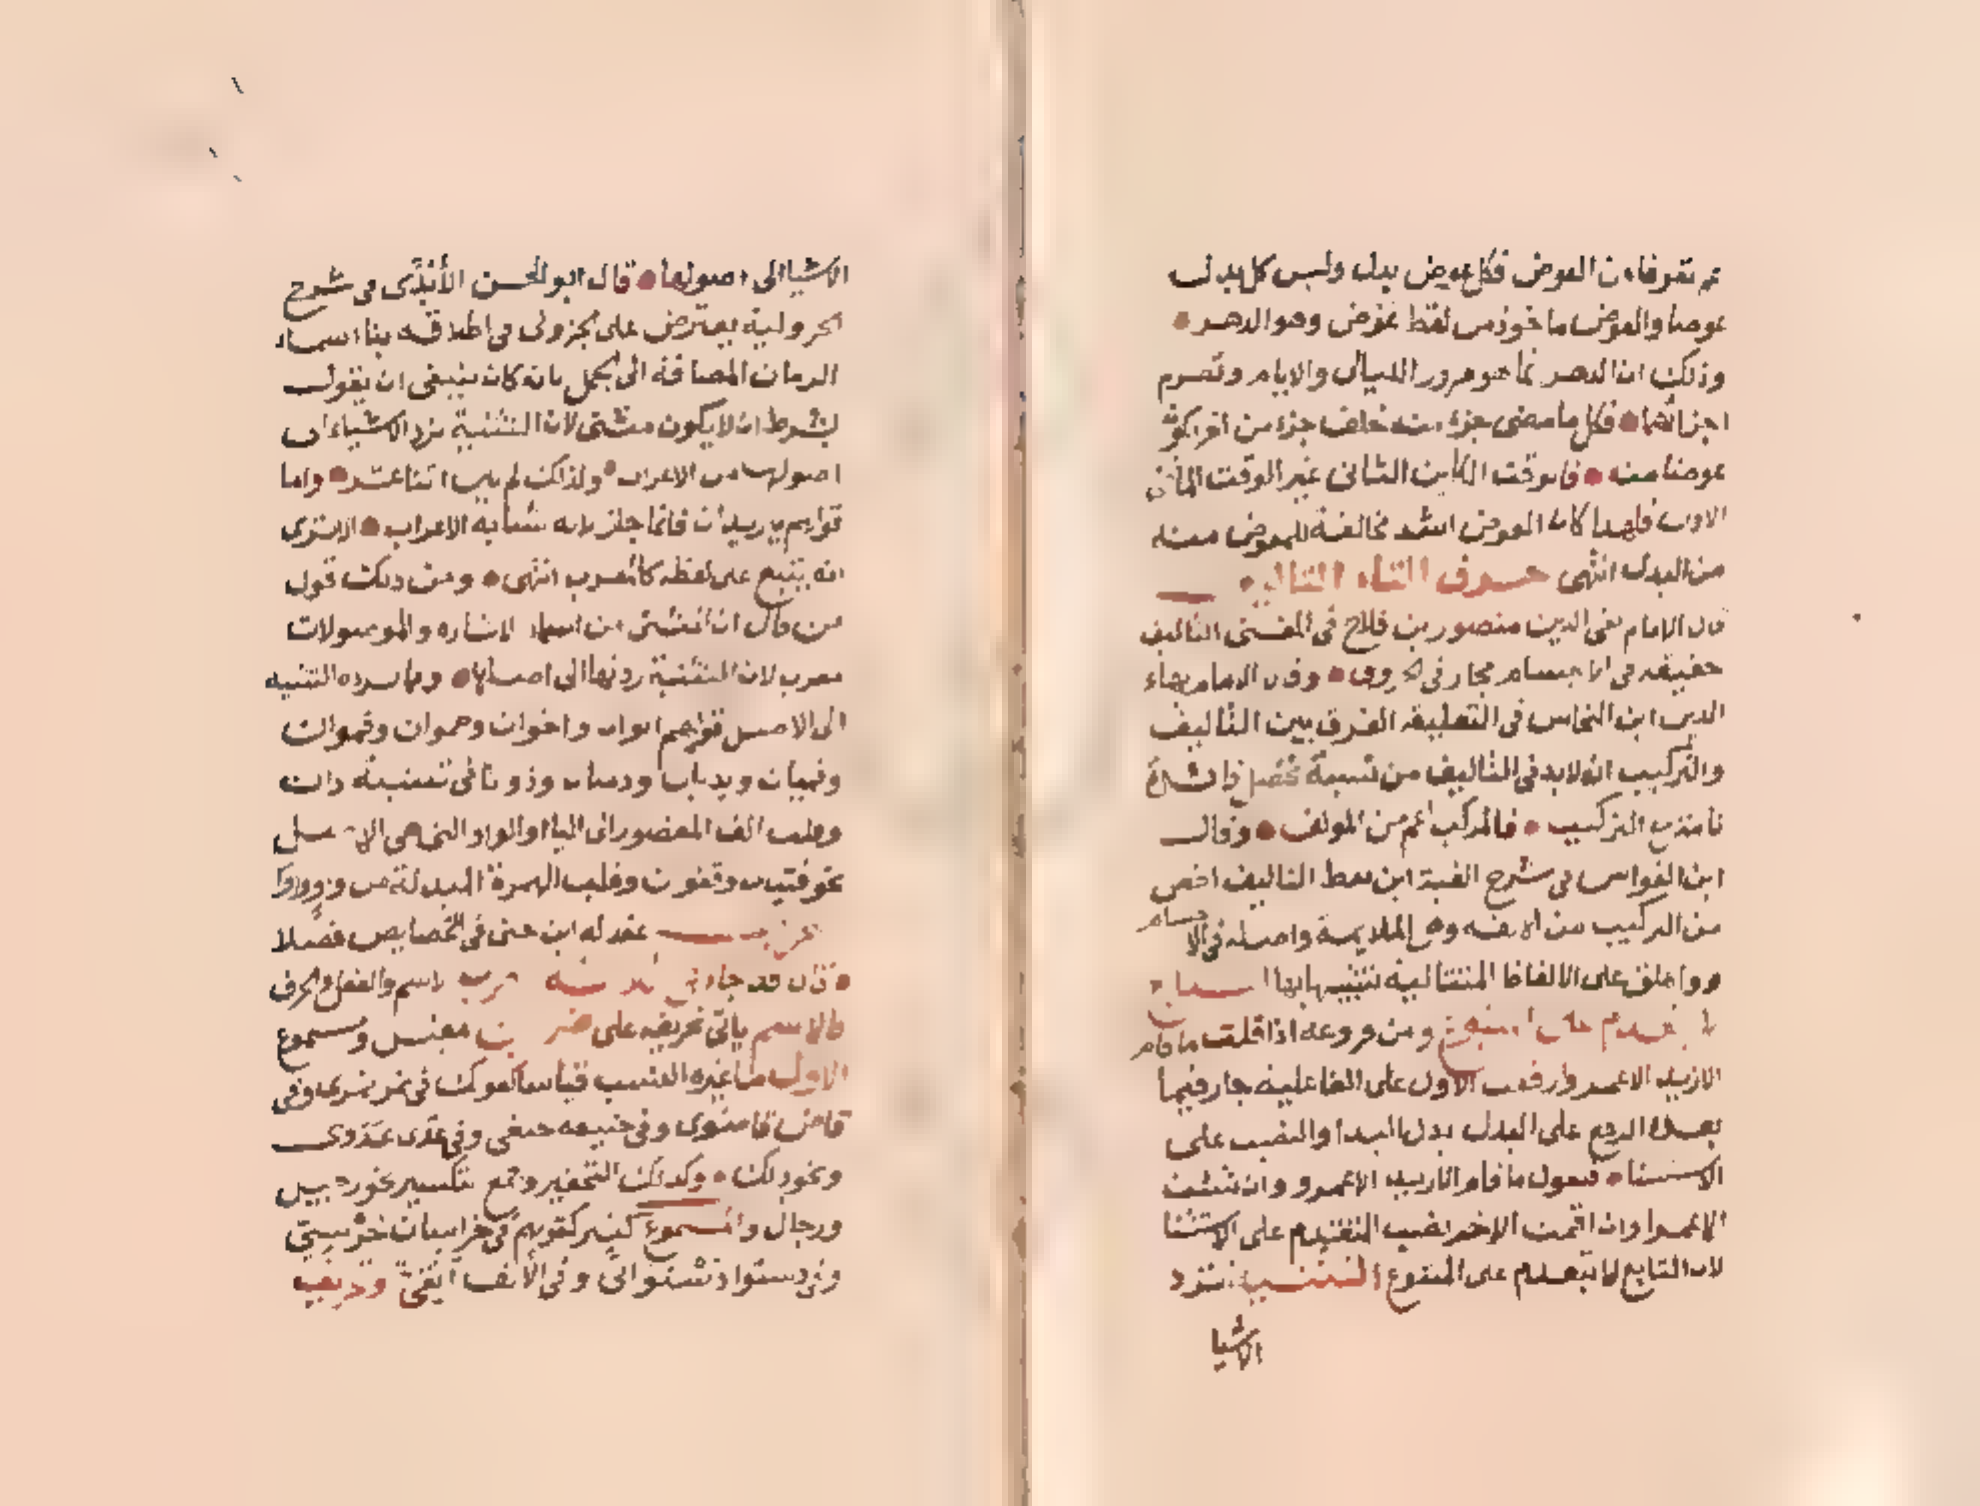 تصرفا من العوض فكل عوض بدل وليس كل بدل
عوضا والعوض ماخوذ من لفظ عوض وهو الدهر
وذلك ان الدهر انما هو مرور الليالى والايام وتصرم
اجزائهما فكل ما مضى جزء منه خلف جزء من اخر يكون
عوضا منه فالوقت الكاين الثانى غير الوقت الماضى
الاول فلهذا كان العوض اشد مخالفة للمعوض منه
من البدل انتهى حرف التاء التاليف
قال الامام تقى الدين منصور بن فلاح فى المغنى التاليف
حقيقة فى الاجسام مجاز فى الحروف وقال الامام بهاء
الدين ابن النحاس فى التعليقة الفرق بين التاليف
والتركيب انه لابد فى التاليف من نسبة تحصل فائدة
تامة مع التركيب فالمركب اعم من المولف وقال
ابن القواس فى شرح الفية ابن معط التاليف اخص
من التركيب من الالفة وهى الملايمة واصله فى الاجسام
واطلق على الالفاظ المتتالية تشبيها بها التابع
لا يتقدم على المتبوع ومن فروعه اذا قلت ما قام
الا زيد الا عمرو ارفعت الاول على الفاعلية جاز فيما
بعده الرفع على البدل بدل البدا والنصب على
الاستثنا فتقول ما قام الا زيد الا عمرو وان شئت
الا عمرا وان اقمت الاخر نصب المتقدم على الاستثنا
لان التابع لا يتقدم على المتبوع التثنية ترد
الاشيا
الاشيا الى اصولها قال ابو الحسن الأبذى فى شرح
الجزولية يعترض على الجزولى فى اطلاقه بنا اسماء
الزمان المضافة الى الجمل بانه كان ينبغى ان يقول
بشرط ان لا يكون مثنى لان التثنية ترد الاشياء الى
اصولها من الاعراب ولذلك لم يبن اثنا عشر واما
قولهم يا زيدان فانما جاز لانه شابه الاعراب الا ترى
انه يتبع على لفظه كالمعرب انتهى ومن ذلك قول
من قال ان المثنى من اسماء الاشاره والموصولات
معرب لان التثنية ردتها الى اصلها ومما ترده التثنيه
الى الاصل قولهم ابوان واخوان وحموان وفموان
وفميان ويديان ودميان وذواتا فى تثنية ذات
وقلب الف المقصور الى الياء او الواو التى هى الاصل
نحو فتيان وقفوان وقلب الهمزة المبدلة من واو واوا
عقد له ابن جنى فى الخصايص فصلا
قال قد جا فى الاسم والفعل والحرف
فالاسم ياتى تحريفه على ضربين مقيس ومسموع
الاول ما غيره النسب قياسا كقولك فى نمر نمرى وفى
قاض قاضوى وفى حنيفه حنفى وفى عدى عدوى
ونحو ذلك وكذلك التحقير وجمع تكسير نحو رجيل
ورجال والمسموع كثير كقولهم فى خراسان خرسى
وفى دستوا دستوانى وفى الافق أفقى وتحريف